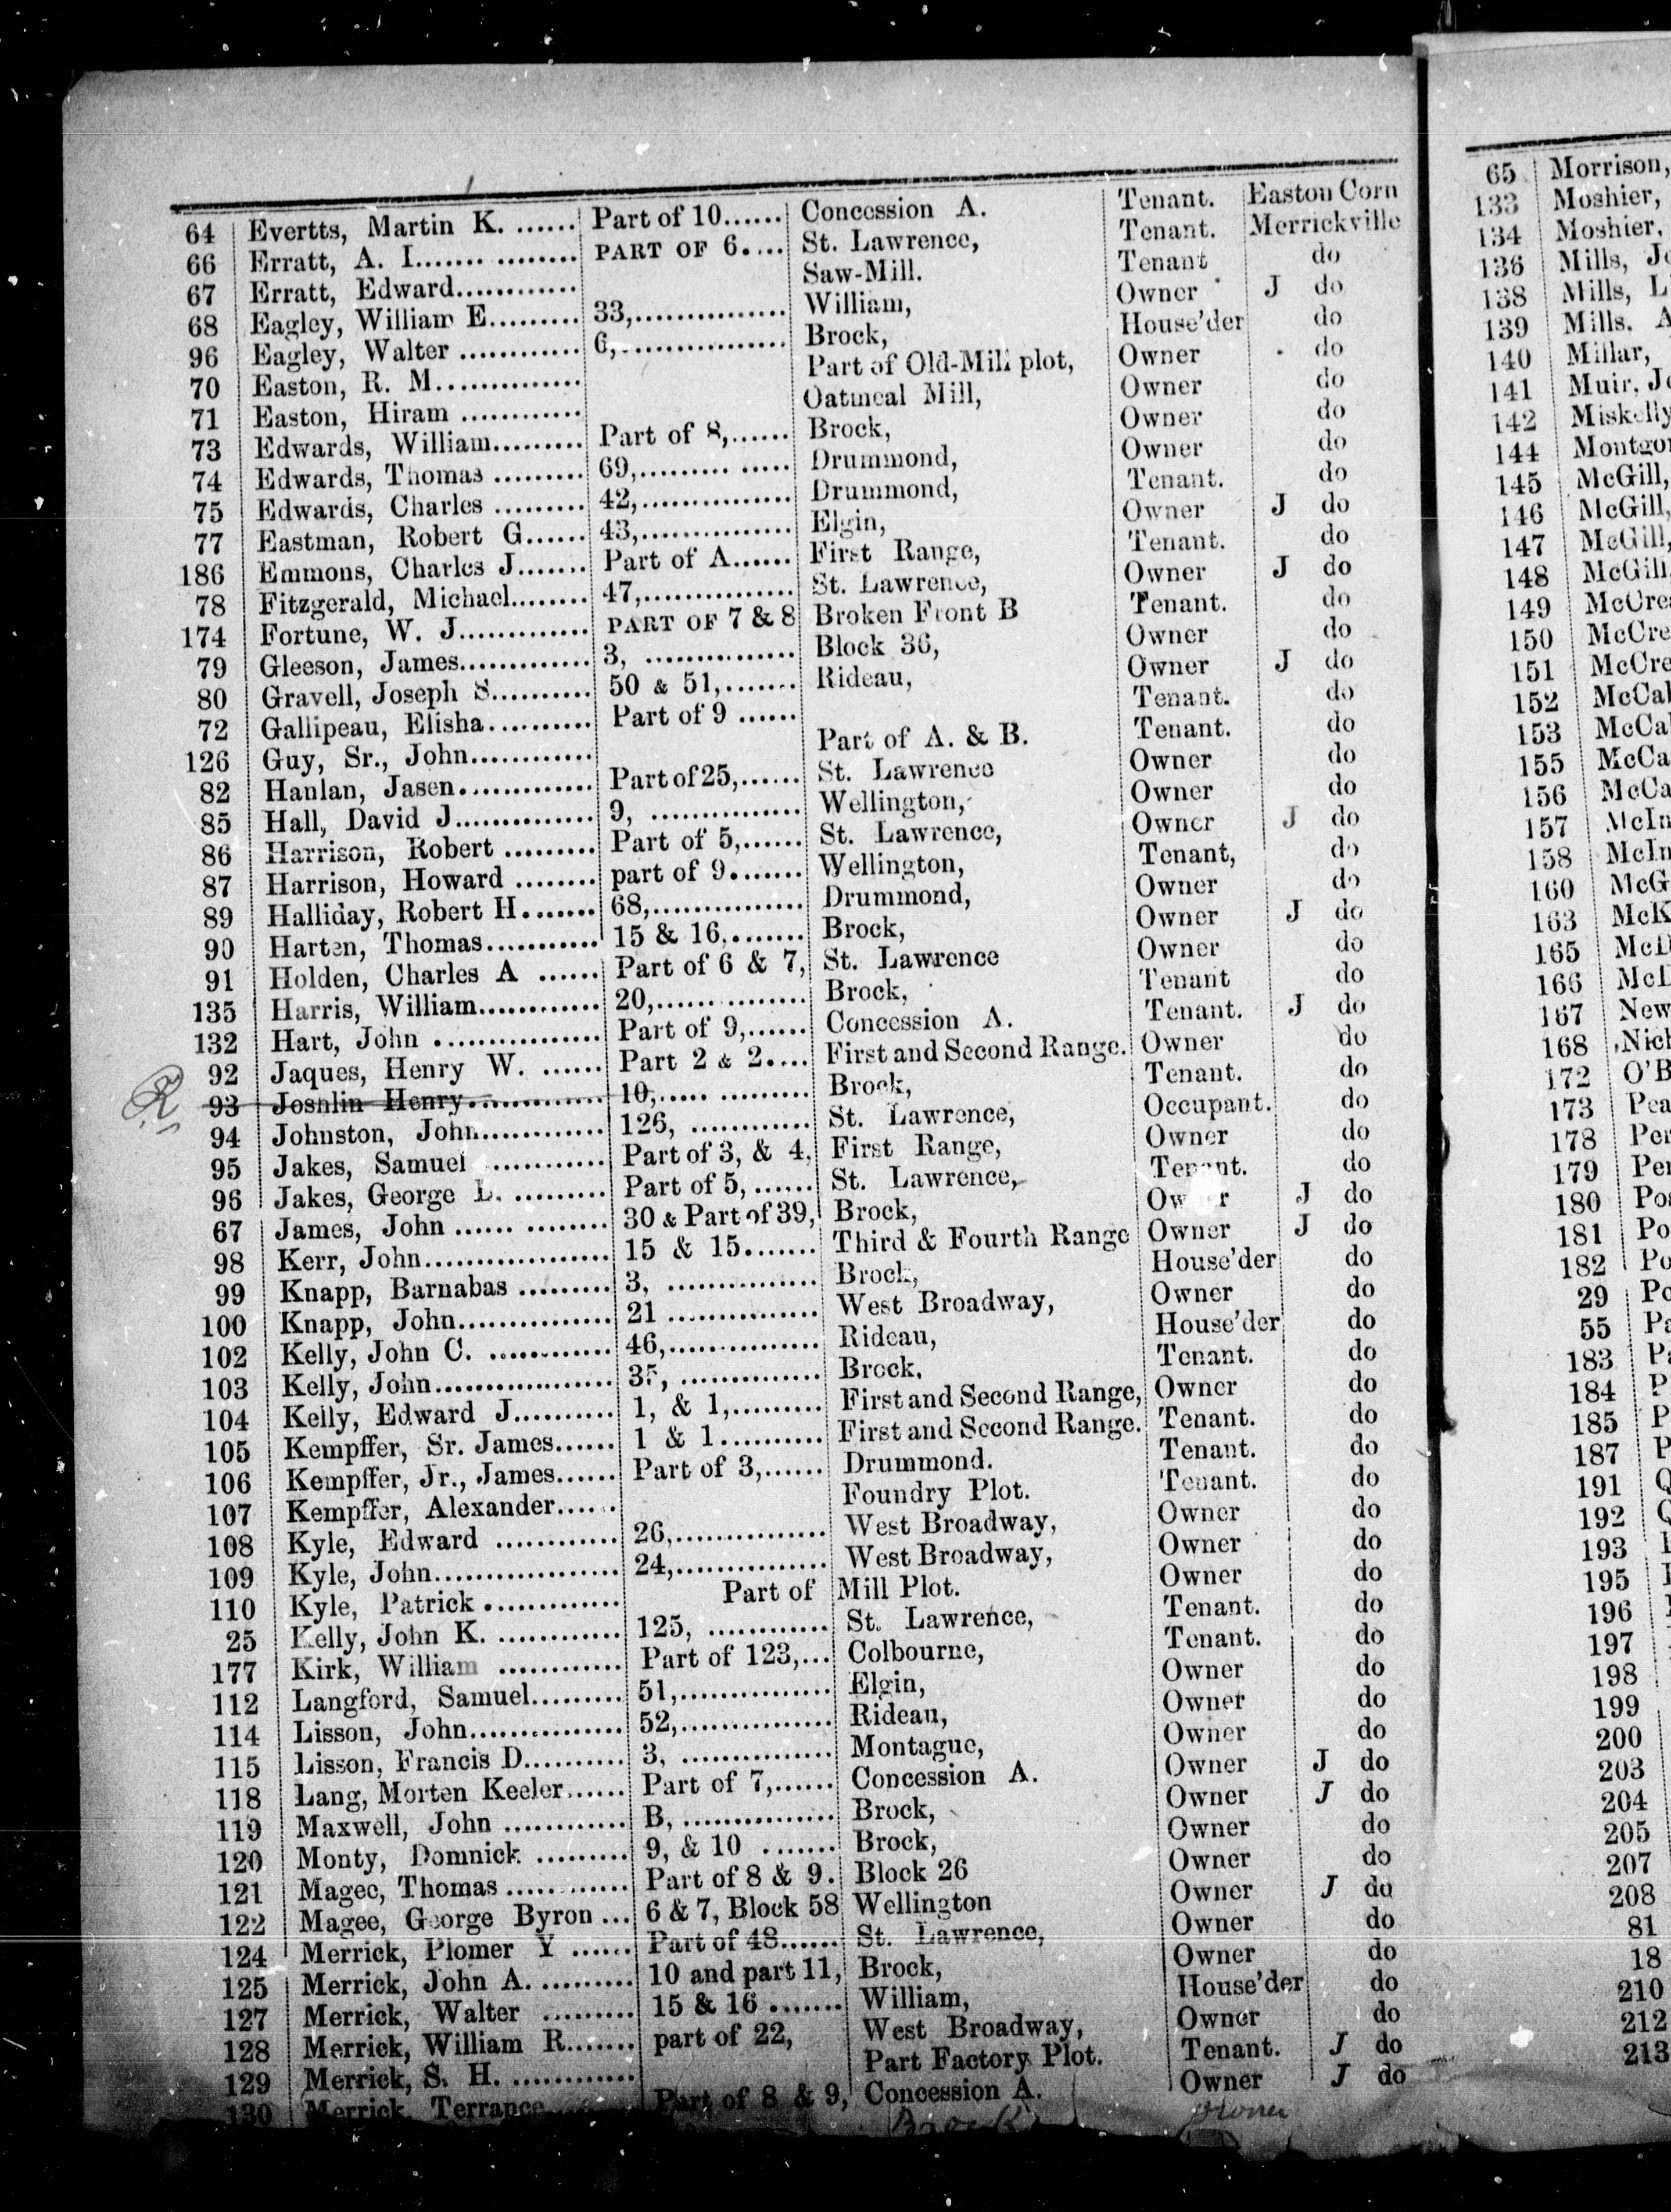 64 Evertts, Martin K. ...... Part of 10...... Concession A. Tenant. Easton Corn
66 Erratt, A. I............... PART OF 6.... St. Lawrence, Tenant. Merrickville
67 Erratt, Edward............ Saw-Mill. Tenant do
68 Eagley, William E......... 33,............... William, Owner J do
96 Eagley, Walter ............ 6,................. Brock, House'der do
70 Easton, R. M.............. Part of Old-Mill plot, Owner do
71 Easton, Hiram ............ Oatmeal Mill, Owner do
73 Edwards, William......... Part of 8,...... Brock, Owner do
74 Edwards, Thomas ......... 69,.............. Drummond, Owner do
75 Edwards, Charles ......... 42,............... Drummond, Tenant. do
77 Eastman, Robert G...... 43,............... Elgin, Owner J do
186 Emmons, Charles J....... Part of A...... First Range, Tenant. do
78 Fitzgerald, Michael........ 47,............... St. Lawrence, Owner J do
174 Fortune, W. J............. PART OF 7 & 8 Broken Front B Tenant. do
79 Gleeson, James............. 3, ............... Block 36, Owner do
80 Gravell, Joseph S.......... 50 & 51,....... Rideau, Owner J do
72 Gallipeau, Elisha.......... Part of 9 ...... Tenant. do
126 Guy, Sr., John............ Part of A. & B. Tenant. do
82 Hanlan, Jasen............. Part of 25,...... St. Lawrence Owner do
85 Hall, David J.............. 9, ............... Wellington, Owner do
86 Harrison, Robert ......... Part of 5,...... St. Lawrence, Owner J do
87 Harrison, Howard ........ part of 9....... Wellington, Tenant, do
89 Halliday, Robert H....... 68,............... Drummond, Owner do
90 Harten, Thomas........... 15 & 16,....... Brock, Owner J do
91 Holden, Charles A ...... Part of 6 & 7, St. Lawrence Owner do
135 Harris, William............ 20,............... Brock, Tenant do
132 Hart, John ................ Part of 9,...... Concession A. Tenant. J do
92 Jaques, Henry W. ...... Part 2 & 2.... First and Second Range. Owner do
R 93 Joshlin Henry.............. 10,.............. Brock, Tenant. do
94 Johnston, John............ 126, ............ St. Lawrence, Occupant. do
95 Jakes, Samuel ............ Part of 3, & 4, First Range, Owner do
96 Jakes, George L. ......... Part of 5, ...... St. Lawrence, Tenant. do
67 James, John .............. 30 & Part of 39, Brock, Owner J do
98 Kerr, John.................. 15 & 15....... Third & Fourth Range Owner J do
99 Knapp, Barnabas ......... 3, ............... Brock, House'der do
100 Knapp, John............... 21 ............... West Broadway, Owner do
102 Kelly, John C. ............ 46,............... Rideau, House'der do
103 Kelly, John.................. 35, .............. Brock. Tenant. do
104 Kelly, Edward J.......... 1, & 1,......... First and Second Range, Owner do
105 Kempffer, Sr. James...... 1 & 1.......... First and Second Range. Tenant. do
106 Kempffer, Jr., James...... Part of 3,...... Drummond. Tenant. do
107 Kempffer, Alexander...... Foundry Plot. Tenant. do
108 Kyle, Edward ............ 26,............... West Broadway, Owner do
109 Kyle, John.................. 24,............... West Broadway, Owner do
110 Kyle, Patrick ............. Part of Mill Plot. Owner do
25 Kelly, John K. ............ 125, ............ St. Lawrence, Tenant. do
177 Kirk, William ............ Part of 123,... Colbourne, Tenant. do
112 Langford, Samuel......... 51,............... Elgin, Owner do
114 Lisson, John............... 52,............... Rideau, Owner do
115 Lisson, Francis D.......... 3, ............... Montague, Owner do
118 Lang, Morten Keeler...... Part of 7,...... Concession A. Owner J do
119 Maxwell, John ............ B, ............... Brock, Owner J do
120 Monty, Domnick ......... 9, & 10 ....... Brock, Owner do
121 Magee, Thomas ............ Part of 8 & 9. Block 26 Owner do
122 Magee, George Byron ... 6 & 7, Block 58 Wellington Owner J do
124 Merrick, Plomer Y ...... Part of 48...... St. Lawrence, Owner do
125 Merrick, John A. .......... 10 and part 11, Brock, Owner do
127 Merrick, Walter ......... 15 & 16 ....... William, House'der do
128 Merrick, William R....... part of 22, West Broadway, Owner do
129 Merrick, S. H. ............ Part Factory Plot. Tenant. J do
130 Merrick, Terrance Part of 8 & 9, Concession A. Owner J do
Brock owner
65 Morrison,
133 Moshier,
134 Moshier,
136 Mills,
138 Mills, L
139 Mills. A
140 Millar,
141 Muir,
142 Miskelly
144
145 McGill,
146 McGill,
147 McGill,
148 McGill
149
150
151
152
153
155
156
157
158
160
163
165
166
167
168
172
173
178
179
180
181
182
29
55
183
184
185
187
191
192
193
195
196
197
198
199
200
203
204
205
207
208
81
18
210
212
213